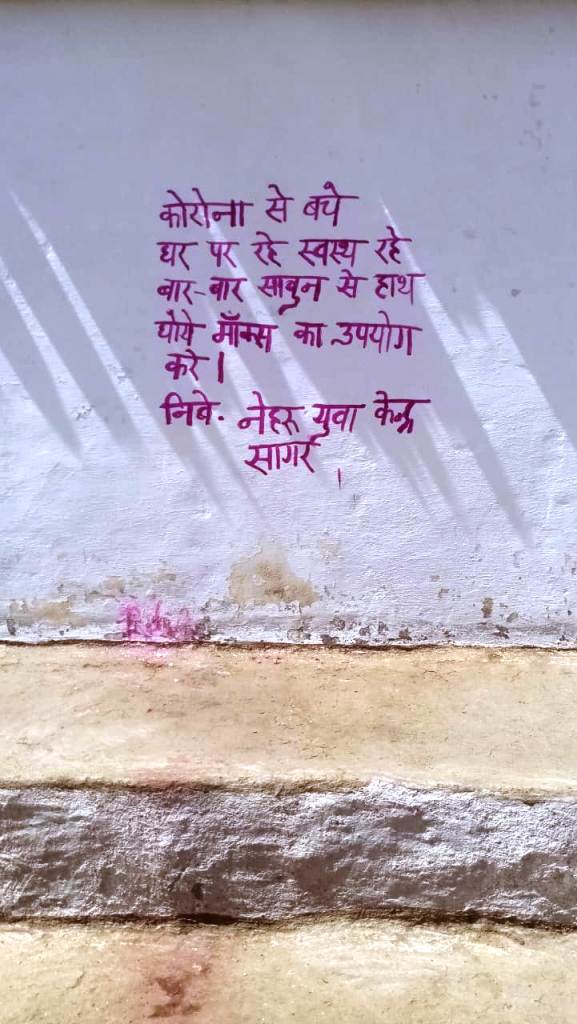 कोरोना से बचे
घर पर रहे स्वस्थ रहे
बार-बार साबुन से हाथ
धोये मॉक्स का उपयोग
करे।
निवे. नेहरू युवा केन्द्र
सागर